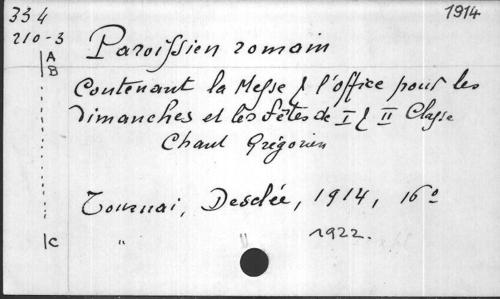 334 1914
210-3
A Paroissien romain
B
Contenant la Messe & l'office pour les
Dimanches et les fêtes de I & II Classe
Chant Grégorien
Tournai, Desclée, 1914, 16°
C " " 1922.